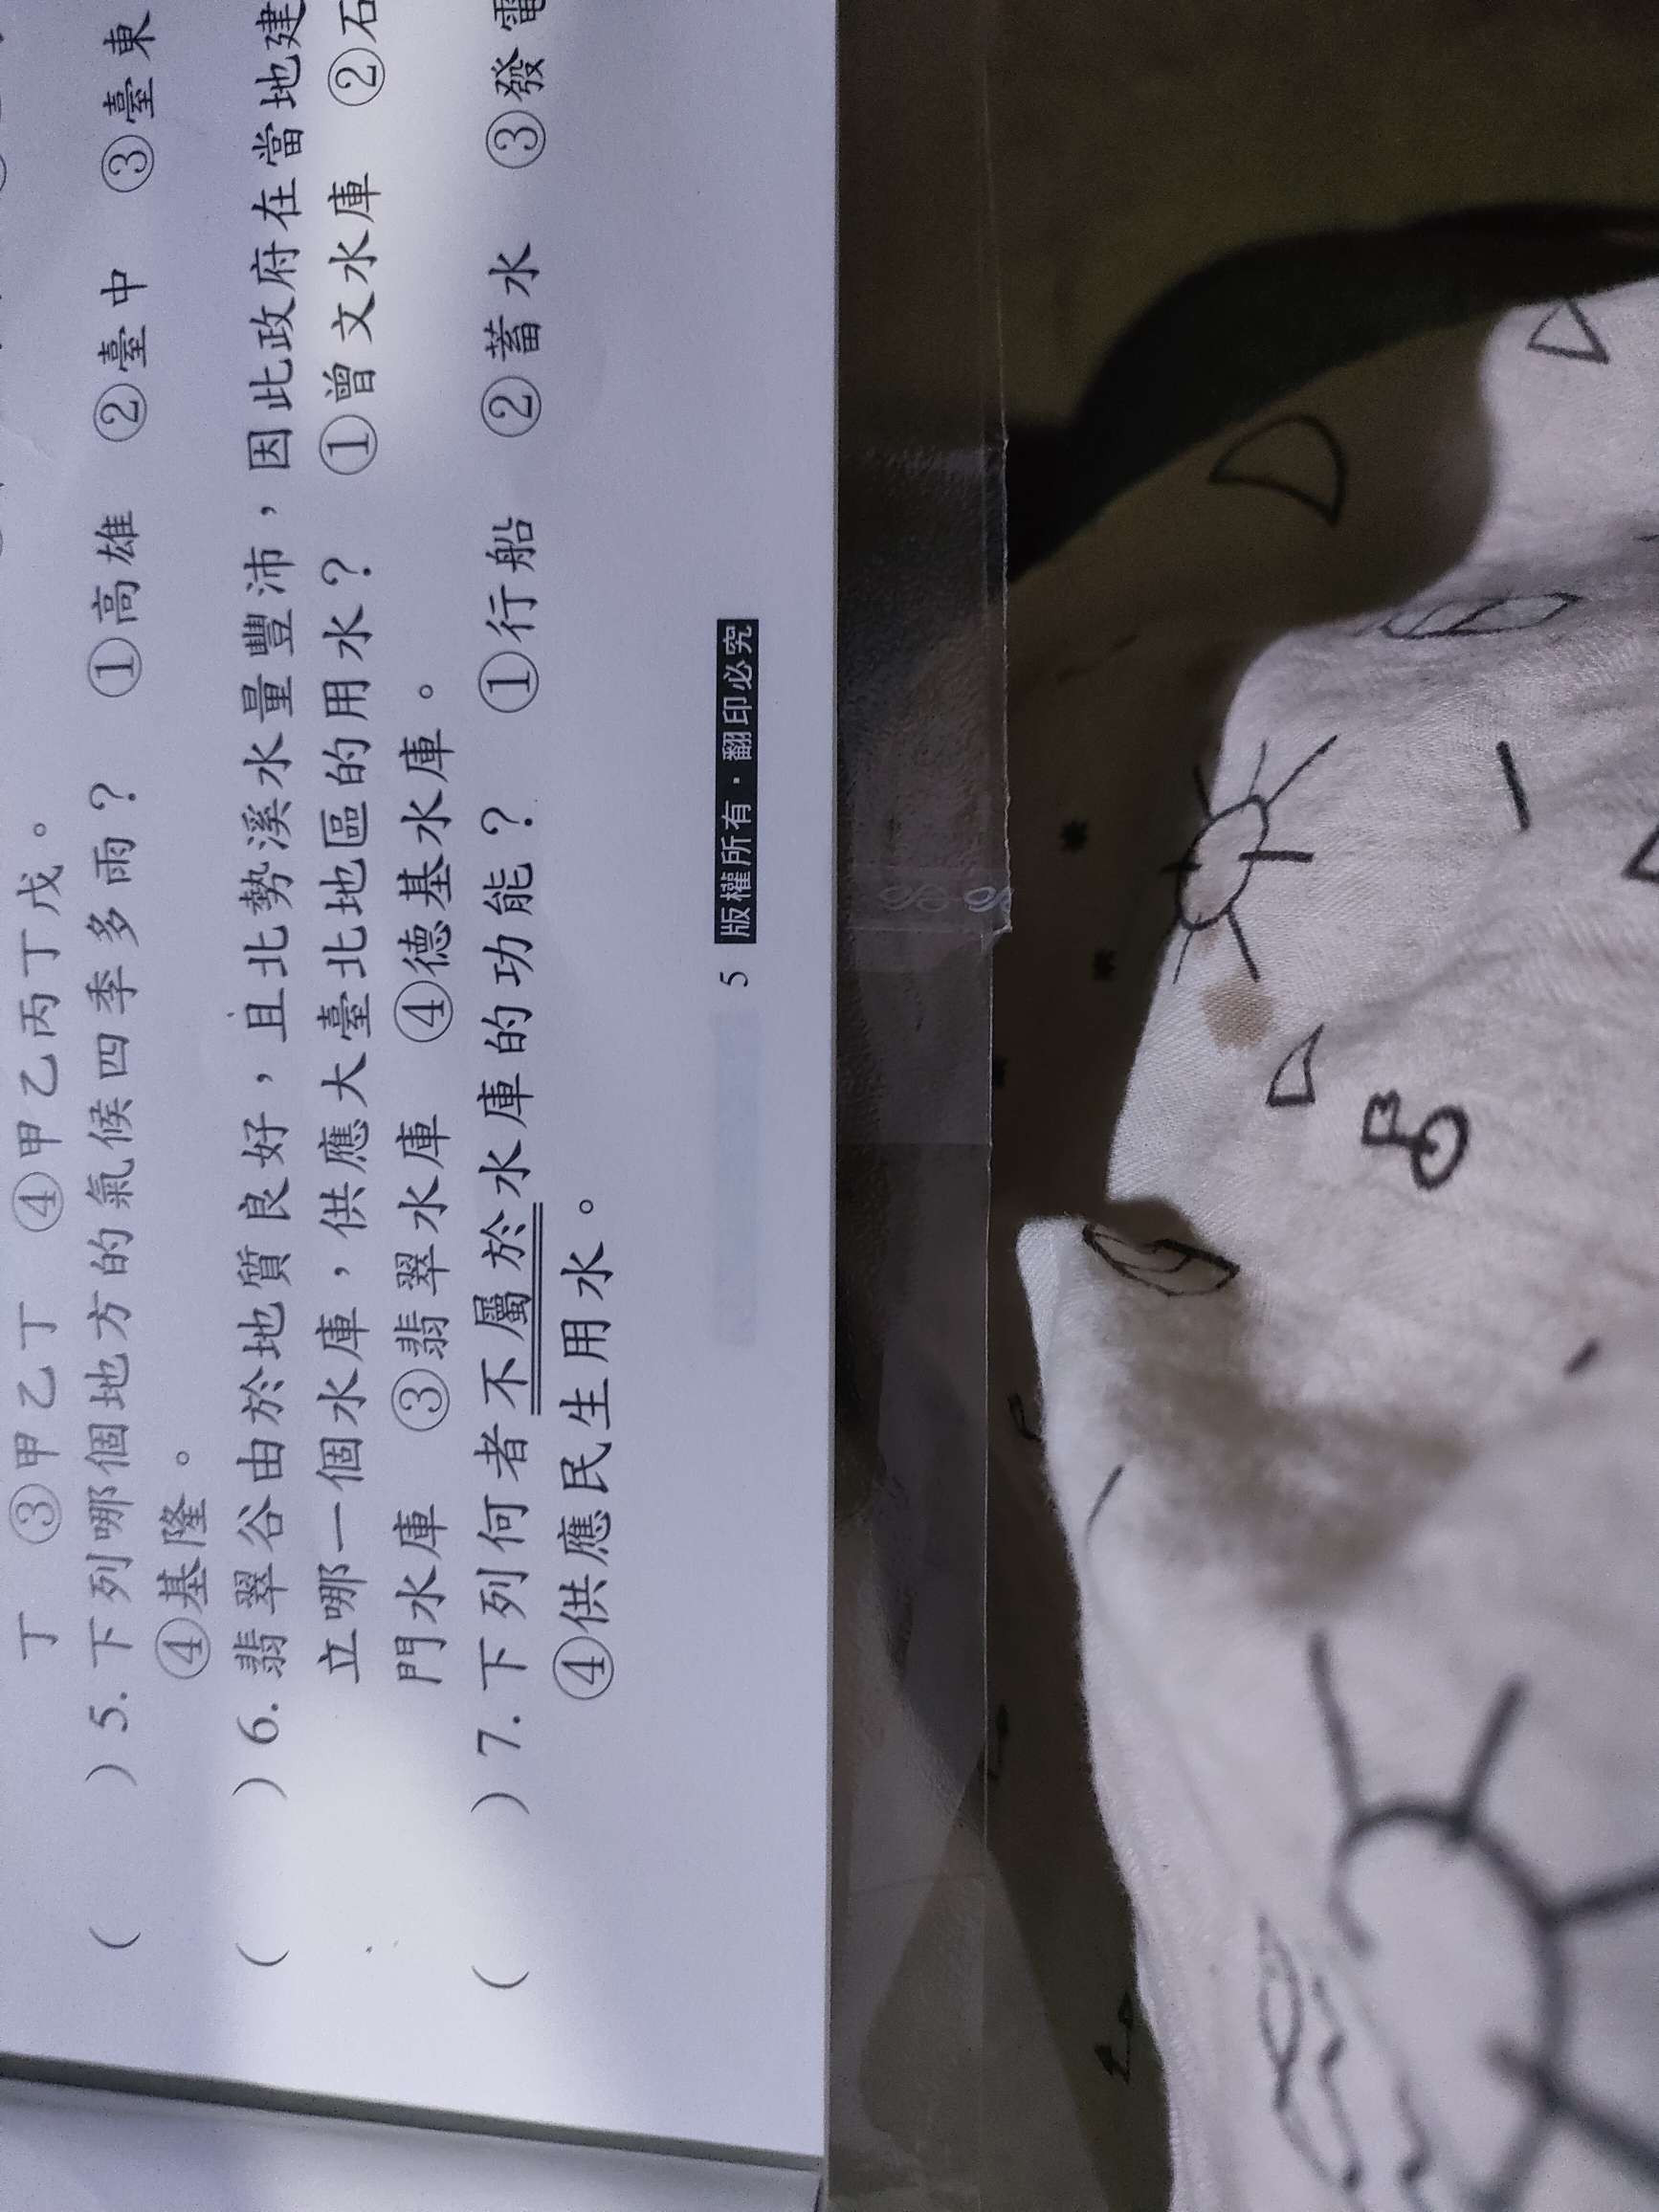 丁　③甲乙丁　④甲乙丙丁戊。
(　　)5.下列哪個地方的氣候四季多雨？　①高雄　②臺中　③臺東
④基隆。
(　　)6.翡翠谷由於地質良好，且北勢溪水量豐沛，因此政府在當地建
立哪一個水庫，供應大臺北地區的用水？　①曾文水庫　②石
門水庫　③翡翠水庫　④德基水庫。
(　　)7.下列何者不屬於水庫的功能？　①行船　②蓄水　③發電
④供應民生用水。
5　版權所有・翻印必究